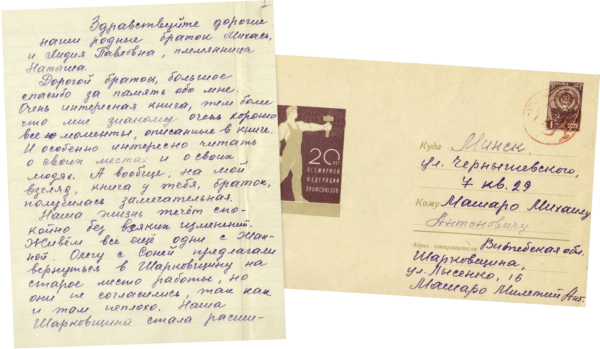 Здравствуйте дорогие
наши родные браток Михась,
и Лидия Павловна, племянница
Наташа.
Дорогой браток, большое
спасибо за память обо мне.
Очень интересная книга, тем боле
что мне знакомы очень хорошо
все моменты, описанные в книге.
И особенно интересно читать
о своих местах и о своих
людях. А вообще, на мой
взгляд, книга у тебя, браток,
получилась замечательная.
Наша жизнь течёт спо-
койно без всяких изменений.
Живём всё ещё одни с Жан-
ной. Олегу с Соней предлагали
вернуться в Шарковщину на
старое место работы, но
они не согласились, так как
и там неплохо. Наша
Шарковщина стала расши-
20 ЛЕТ
ВСЕМИРНОЙ
ФЕДЕРАЦИИ
ПРОФСОЮЗОВ
Куда Минск
ул. Чернышевского,
7 кв. 29
Кому Машаро Михаилу
Антоновичу
Адрес отправителя Витебская обл.
Шарковщина,
ул. Лысенко, 16
Машаро Милетий Ант.